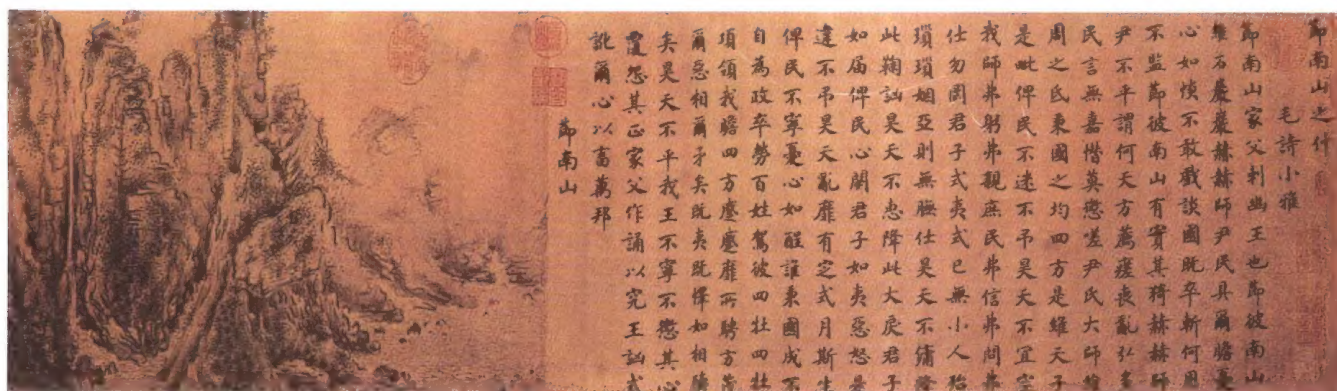 節南山之什
毛詩小雅
節南山家父刺幽王也節彼南山
維石巖巖赫赫師尹民具爾瞻憂
心如惔不敢戲談國既卒斬何用
不監節彼南山有實其猗赫赫師
尹不平謂何天方薦瘥喪亂弘多
民言無嘉憯莫懲嗟尹氏大師維
周之氐秉國之均四方是維天子
是毗俾民不迷不吊昊天不宜空
我師弗躬弗親庶民弗信弗問弗
仕勿罔君子式夷式已無小人殆
瑣瑣姻亞則無膴仕昊天不傭降
此鞠訩昊天不惠降此大戾君子
如届俾民心闋君子如夷惡怒是
違不吊昊天亂靡有定式月斯生
俾民不寧憂心如酲誰秉國成不
自為政卒勞百姓駕彼四牡四牡
項領我瞻四方蹙蹙靡所騁方茂
爾惡相爾矛矣既夷既懌如相醻
矣昊天不平我王不寧不懲其心
覆怨其正家父作誦以究王訩式
訛爾心以畜萬邦
節南山